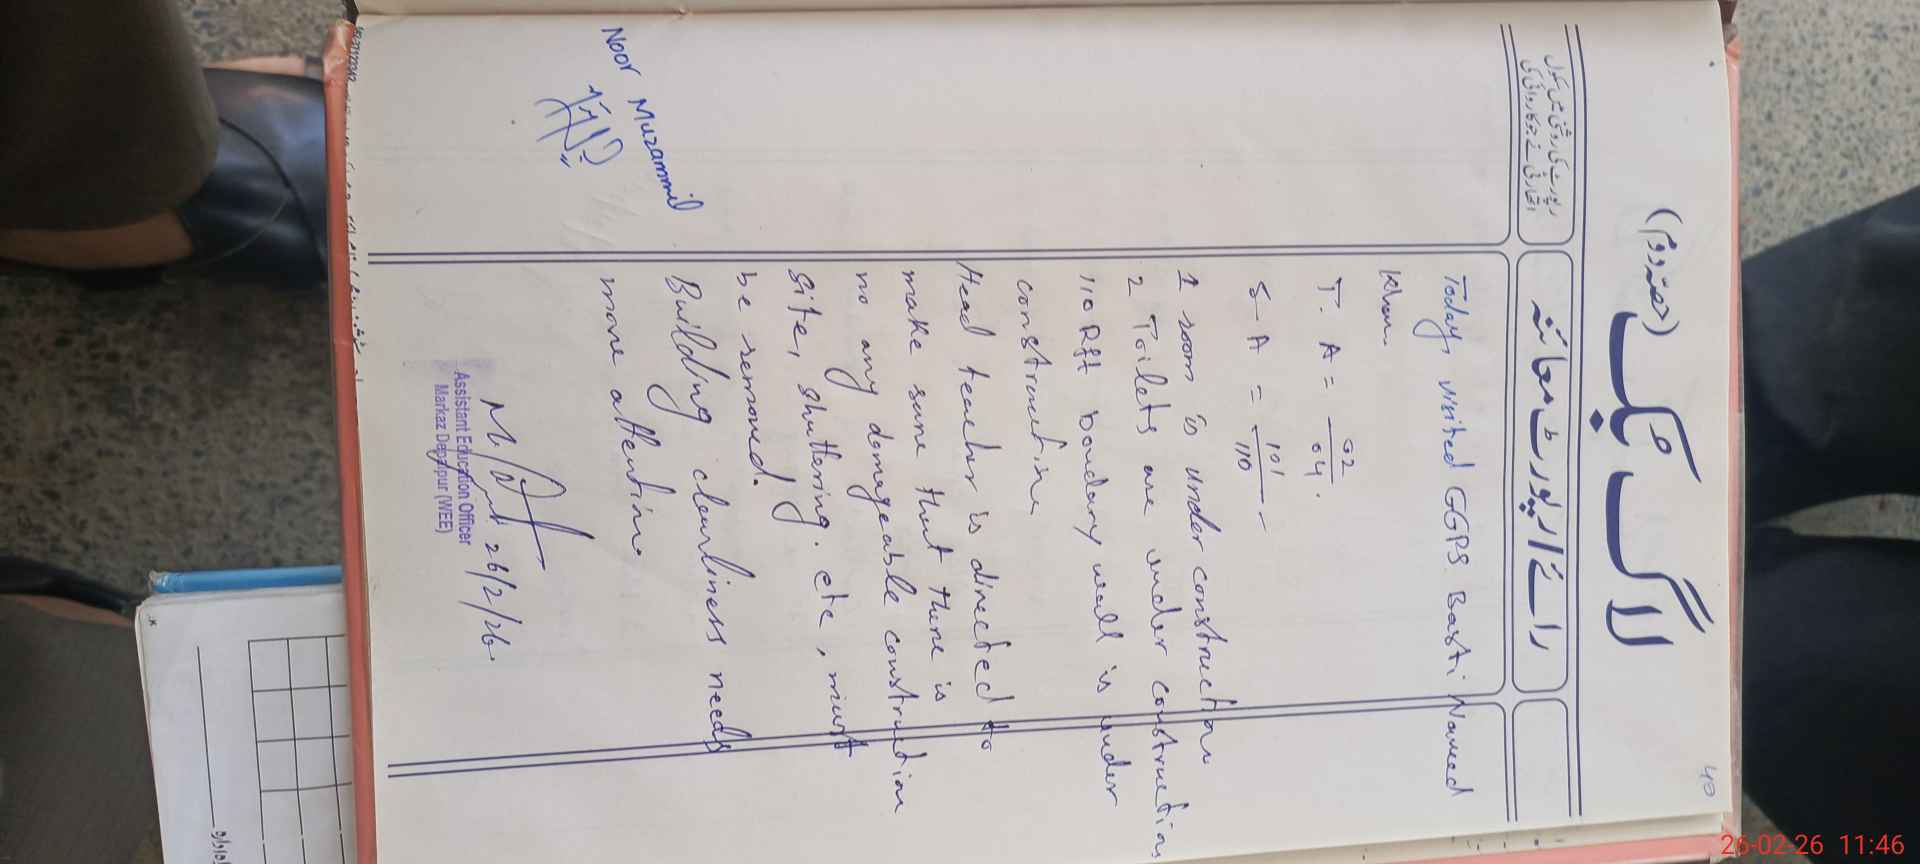 40
لاگ بک (حصہ دوم)
رائے / رپورٹ معائنہ
رپورٹ کی روشنی میں سکول
اتھارٹی نے جو کاروائی کی
Today, visited GGPS Basti Naveed
Khan.
T. A = 02/04.
S - A = 101/110 -
1 room is under construction
2 Toilets are under construction
110 Rft boundary wall is under
construction
Head teacher is directed to
make sure that there is
no any damageable construction
site, shuttering. etc, must
be removed.
Building cleanliness needs
more attention.
26/2/26.
Assistant Education Officer
Markaz Depalpur (WEE)
Noor Muzammil
26-02-26 11:46